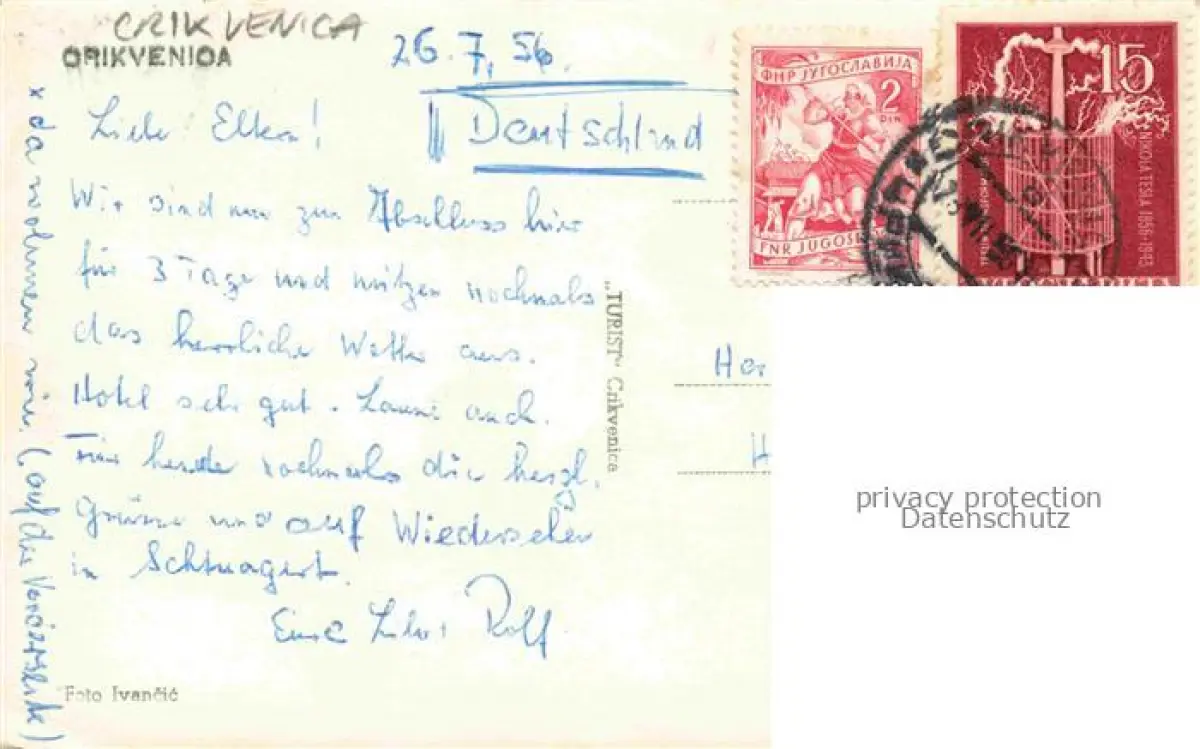 CRIKVENICA
CRIKVENICA
26.7.56.
Deutschland
Liebe Eltern!
Wir sind nun zum Abschluss hier
für 3 Tage und nützen nochmals
das herrliche Wetter aus.
Hotel sehr gut. Laune auch.
Für heute nochmals die herzl.
Grüsse und auf Wiedersehen
in
Rolf
x da wohnen wir. (auf der Vorderseite)
"Foto Ivančić
„TURIST" Crikvenica
ФНР ЈУГОСЛАВИЈА
2
DIN
FNR JUGOSLAVIJA
15
NIKOLA TESLA 1856-1943
Her
H
privacy protection
Datenschutz